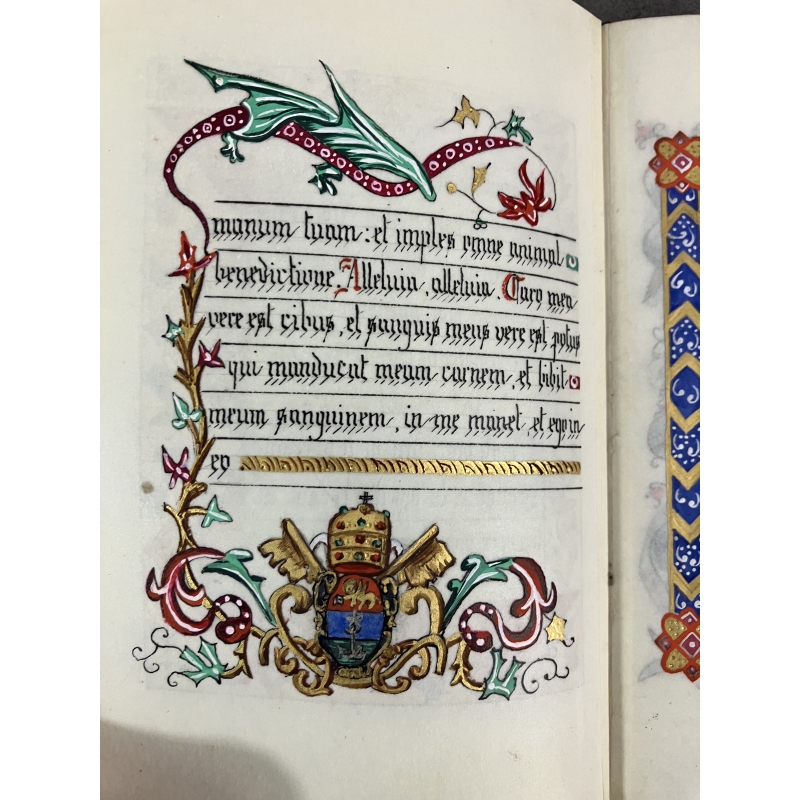 manum tuam: et imples omne animal
benedictione. Alleluia, alleluia. Caro mea
vere est cibus, et sanguis meus vere est potus
qui manducat meam carnem, et bibit
meum sanguinem, in me manet, et ego in
eo